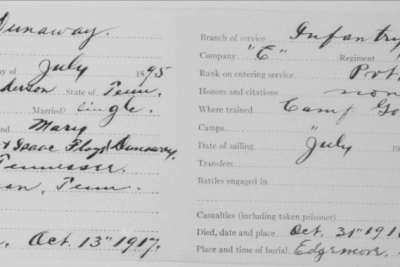 Dunaway.
y of July 1895
derson State of Tenn.
Married? Single.
nd Mary
& Isaac Floyd Dunaway,
Tennessee
an, Tenn.
Oct. 13th 1917.
Branch of service Infantry
Company "C" Regiment
Rank on entering service Pvt.
Honors and citations non
Where trained Camp Go
Camps "
Date of sailing July 19
Transfers
Battles engaged in
Casualties (including taken prisoner)
Died, date and place Oct. 31st 191
Place and time of burial Edgemoor,